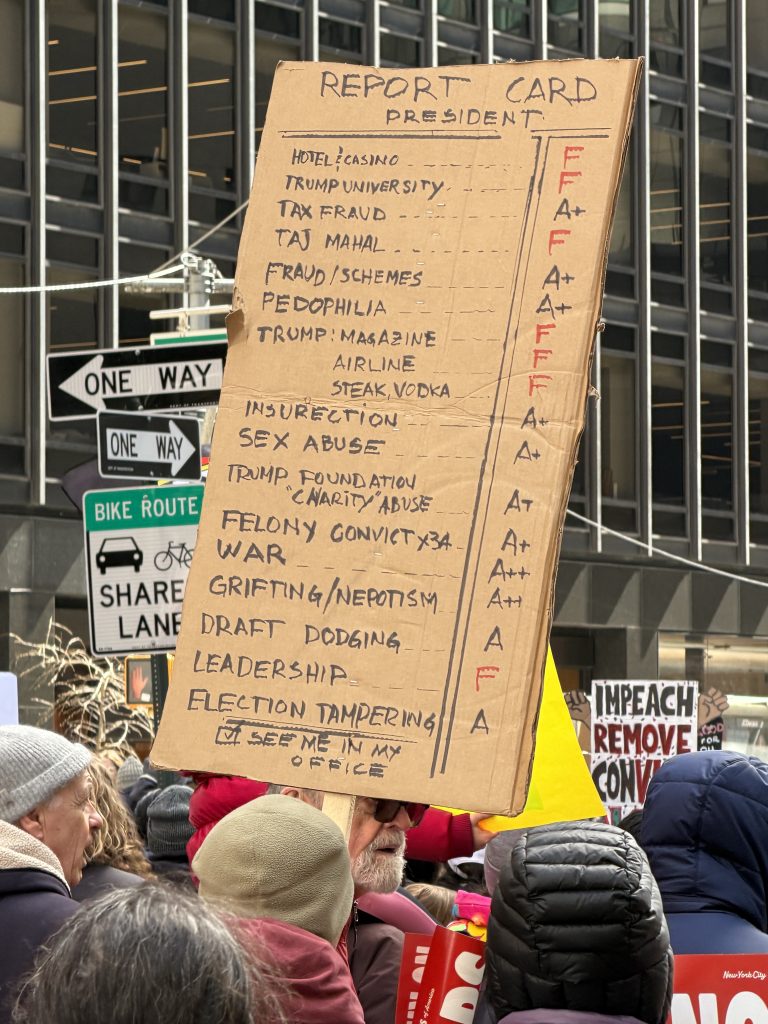 REPORT CARD
PRESIDENT
HOTEL & CASINO F
TRUMP UNIVERSITY F
TAX FRAUD A+
TAJ MAHAL F
FRAUD/SCHEMES A+
PEDOPHILIA A+
TRUMP: MAGAZINE F
AIRLINE F
STEAK, VODKA F
INSURECTION A+
SEX ABUSE A+
TRUMP FOUNDATION
"CHARITY" ABUSE A+
FELONY CONVICT X34 A+
WAR A++
GRIFTING/NEPOTISM A++
DRAFT DODGING A
LEADERSHIP F
ELECTION TAMPERING A
☑ SEE ME IN MY
OFFICE
ONE WAY
ONE WAY
BIKE ROUTE
SHARE
LANE
IMPEACH
REMOVE
CONV
New York City
NO